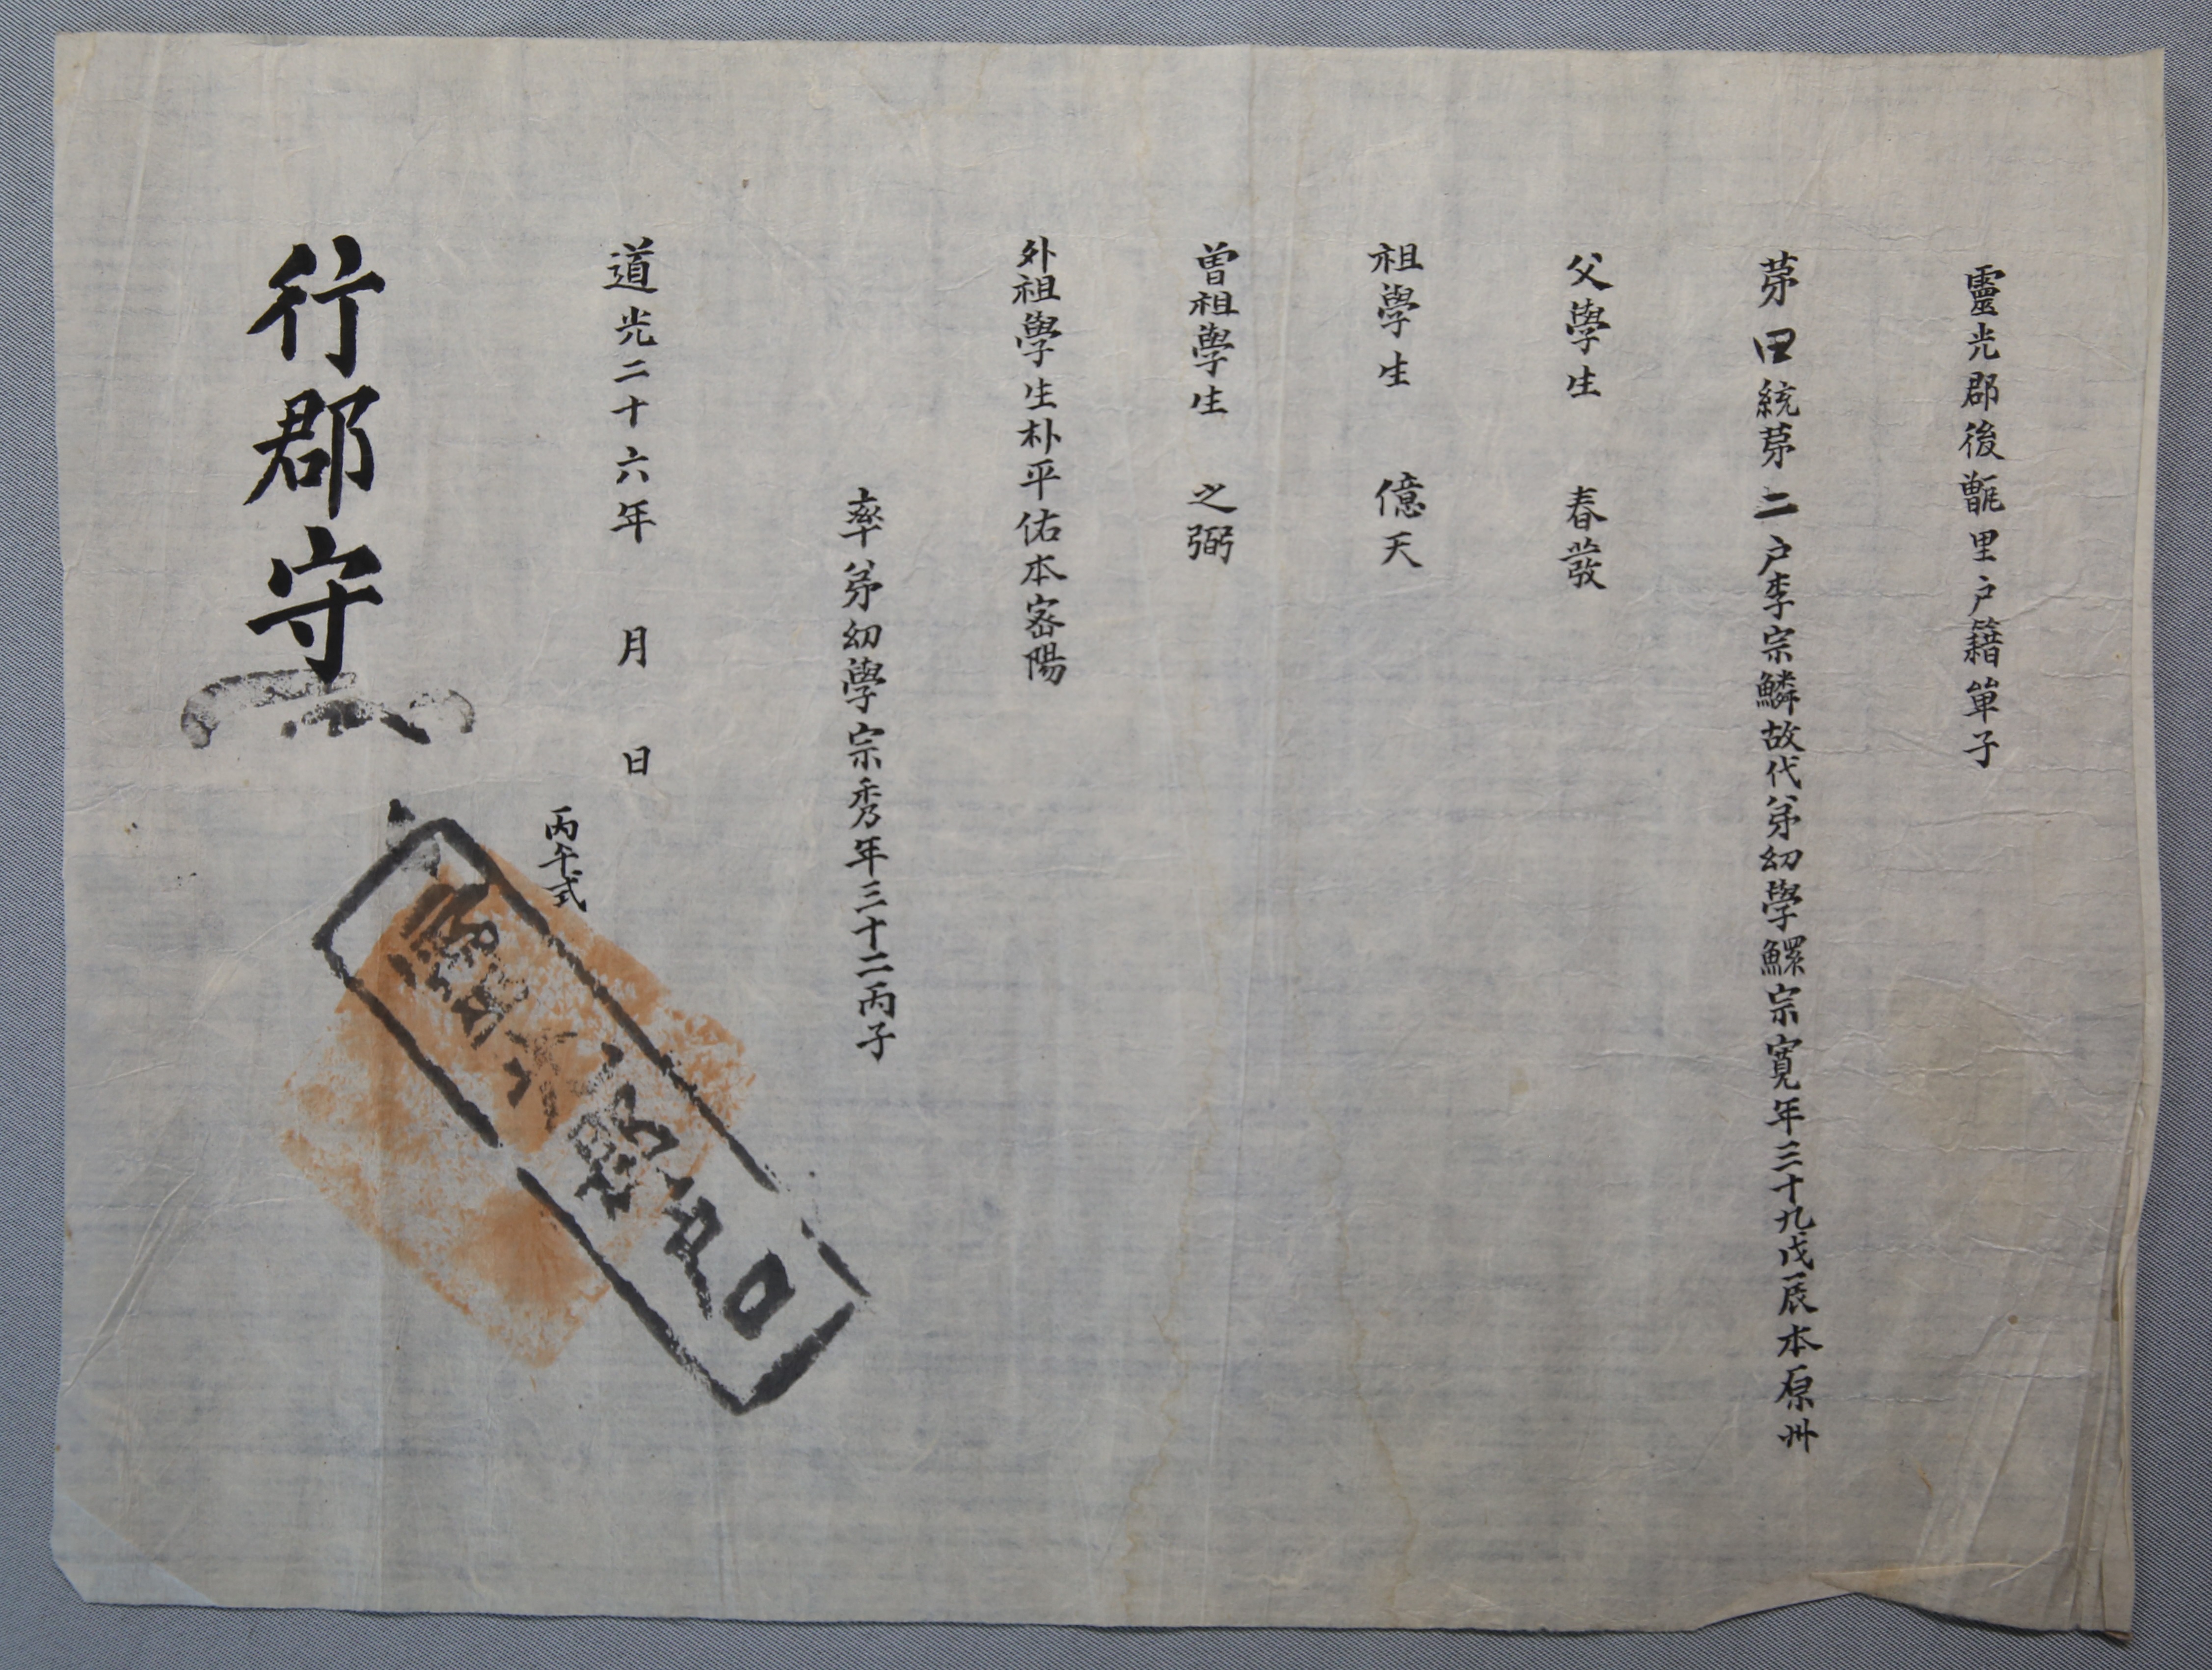 靈光郡後甑里户籍單子
苐四統苐二户李宗鱗故代弟幼學鰥宗寬年三十九戊辰本原州
父學生 春發
祖學生 億天
曽祖學生 之弼
外祖學生朴平佑本密陽
率弟幼學宗秀年三十二丙子
道光二十六年 月 日
丙午式
行郡守